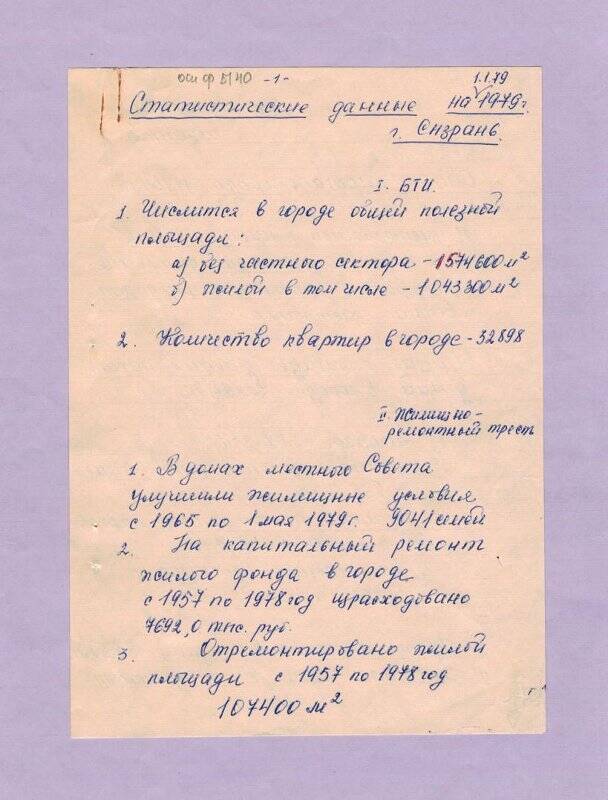 осн ф 5140 -1- 1.1.79
Статистические данные на 1979г.
г. Сызрань.
I. БТИ.
1. Числится в городе общей полезной
площади:
а) без частного сектора - 1574600 м²
б) жилой в том числе - 1043300 м²
2. Количество квартир в городе - 32898
II. Жилищно-
ремонтный трестъ
1. В домах местного Совета
улучшили жилищные условия
с 1965 по 1 мая 1979г. 9041 семей
2. На капитальный ремонт
жилого фонда в городе
с 1957 по 1978 год израсходовано
7692,0 тыс. руб.
3. Отремонтировано жилой
площади с 1957 по 1978 год
107400 м²